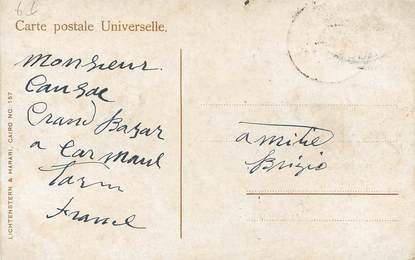 6 £
Carte postale Universelle.
Monsieur
Cansac
Grand Bazar
a Carmaux
Tarn
France
amitié
Brizio
LICHTENSTERN & HARARI, CAIRO NO. 157